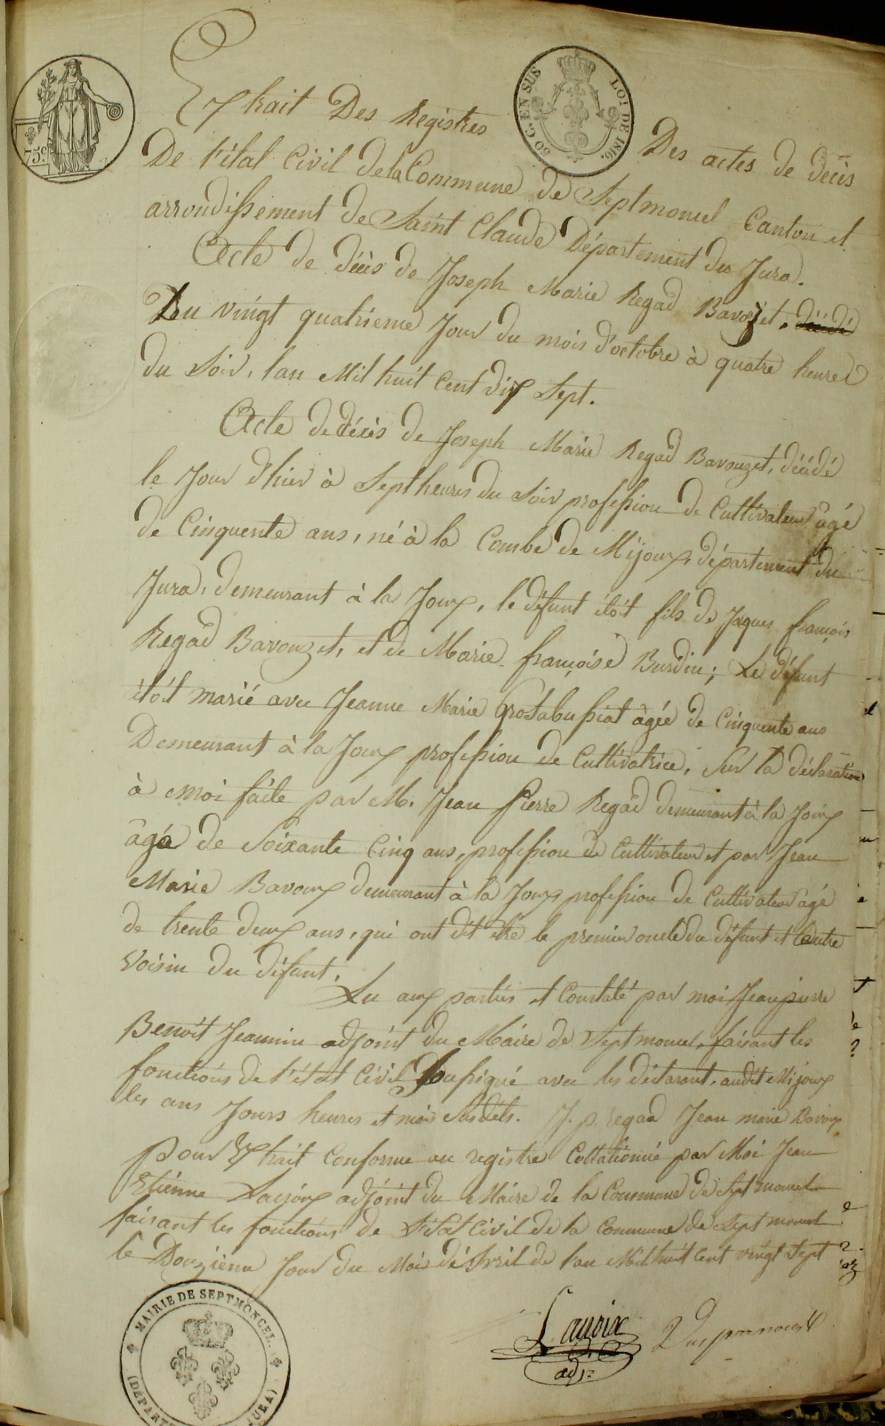 75c
50 C. EN SUS LOI DE 1816.
Extrait Des Registres Des actes de décès
De l'état Civil de la Commune de Septmoncel Canton et
arrondissement de Saint Claude Département du Jura.
Acte de décès de Joseph Marie Regad Bavozet,
Du vingt quatrieme Jour du mois d'octobre à quatre heures
du Soir, l'an Mil huit Cent dix Sept.
Acte de décès de Joseph Marie Regad Bavouzet, décédé
le Jour d'hier à Sept heures du Soir profession de Cultivateur âgé
de Cinquente ans, né à la Combe de Mijoux, département du
Jura, demeurant à la Joux, le défunt étoit fils de Jaques françois
Regad Bavouzet, et de Marie françoise Burdin; Le défunt
étoit marié avec Jeanne Marie Grosabussiat âgée de Cinquente ans
Demeurant à la Joux profession de Cultivatrice. Sur la déclaration
à moi faite par M. Jean Pierre Regad demeurant à la Joux
âgé de Soixante Cinq ans, profession de Cultivateur et par Jean
Marie Bavoux demeurant à la Joux profession de Cultivateur âgé
de trente deux ans, qui ont dit être le premier oncle du défunt et l'autre
Voisin du défunt.
Lu aux parties et Constaté par moi Jean pierre
Benoit Jeannin adjoint du Maire de Septmoncel, faisant les
fonctions de l'état Civil Soussigné avec les déclarant, audit Mijoux
les ans Jours heures et mois Susdits. J. p. regad Jean marie Bavoux
pour Extrait Conforme au registre Collationné par Moi Jean
Etienne Lauxoix adjoint du Maire de la Commune de Septmoncel
faisant les fonctions de l'état Civil de la Commune de Septmoncel
le Douzième Jour du Mois d'Avril de l'an Mil huit Cent vingt Sept
Lauroix
adj.
MAIRIE DE SEPTMONCEL.
(DÉPART JURA)